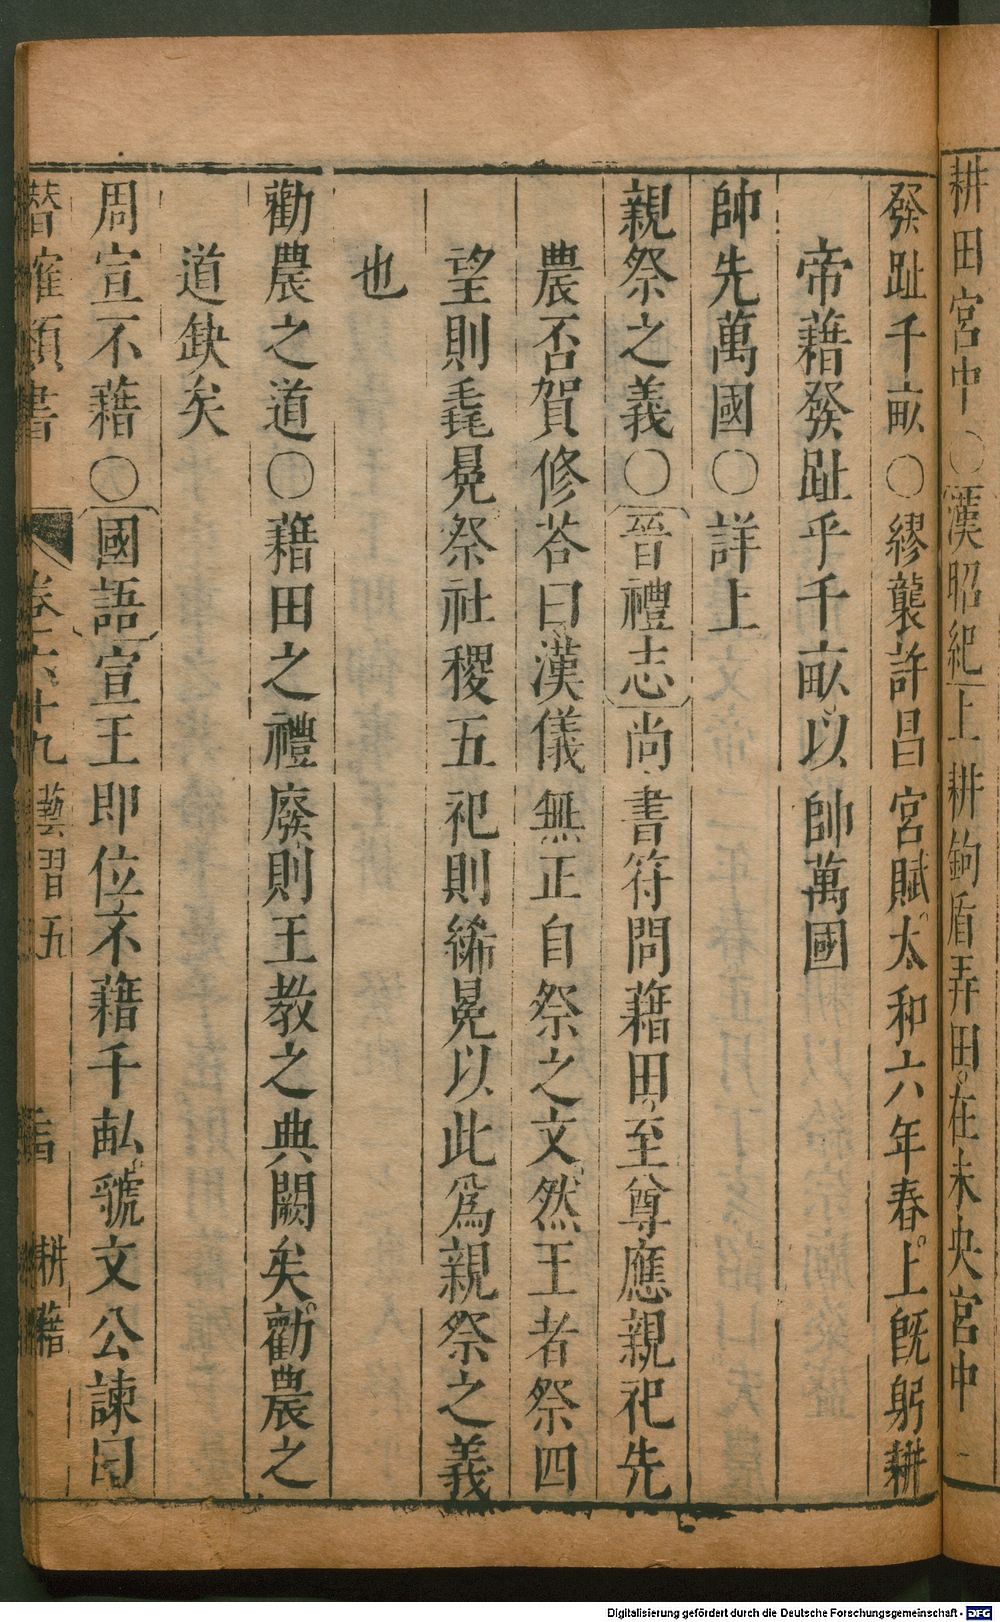 耕田宮中○漢昭紀上耕鉤盾弄田在未央宮中
發趾千畝○繆襲許昌宮賦太和六年春上旣躬耕
帝藉發趾乎千畝以帥萬國
帥先萬國○詳上
親祭之義○晉禮志尚書符問藉田至尊應親祀先
農否賀修荅曰漢儀無正自祭之文然王者祭四
望則毳冕祭社稷五祀則絺冕以此爲親祭之義
也
勸農之道○藉田之禮廢則王教之典闕矣勸農之
道缺矣
周宣不藉○國語宣王即位不藉千畝虢文公諫曰
卷六十九 藝習五 耕藉
Digitalisierung gefördert durch die Deutsche Forschungsgemeinschaft - DFG